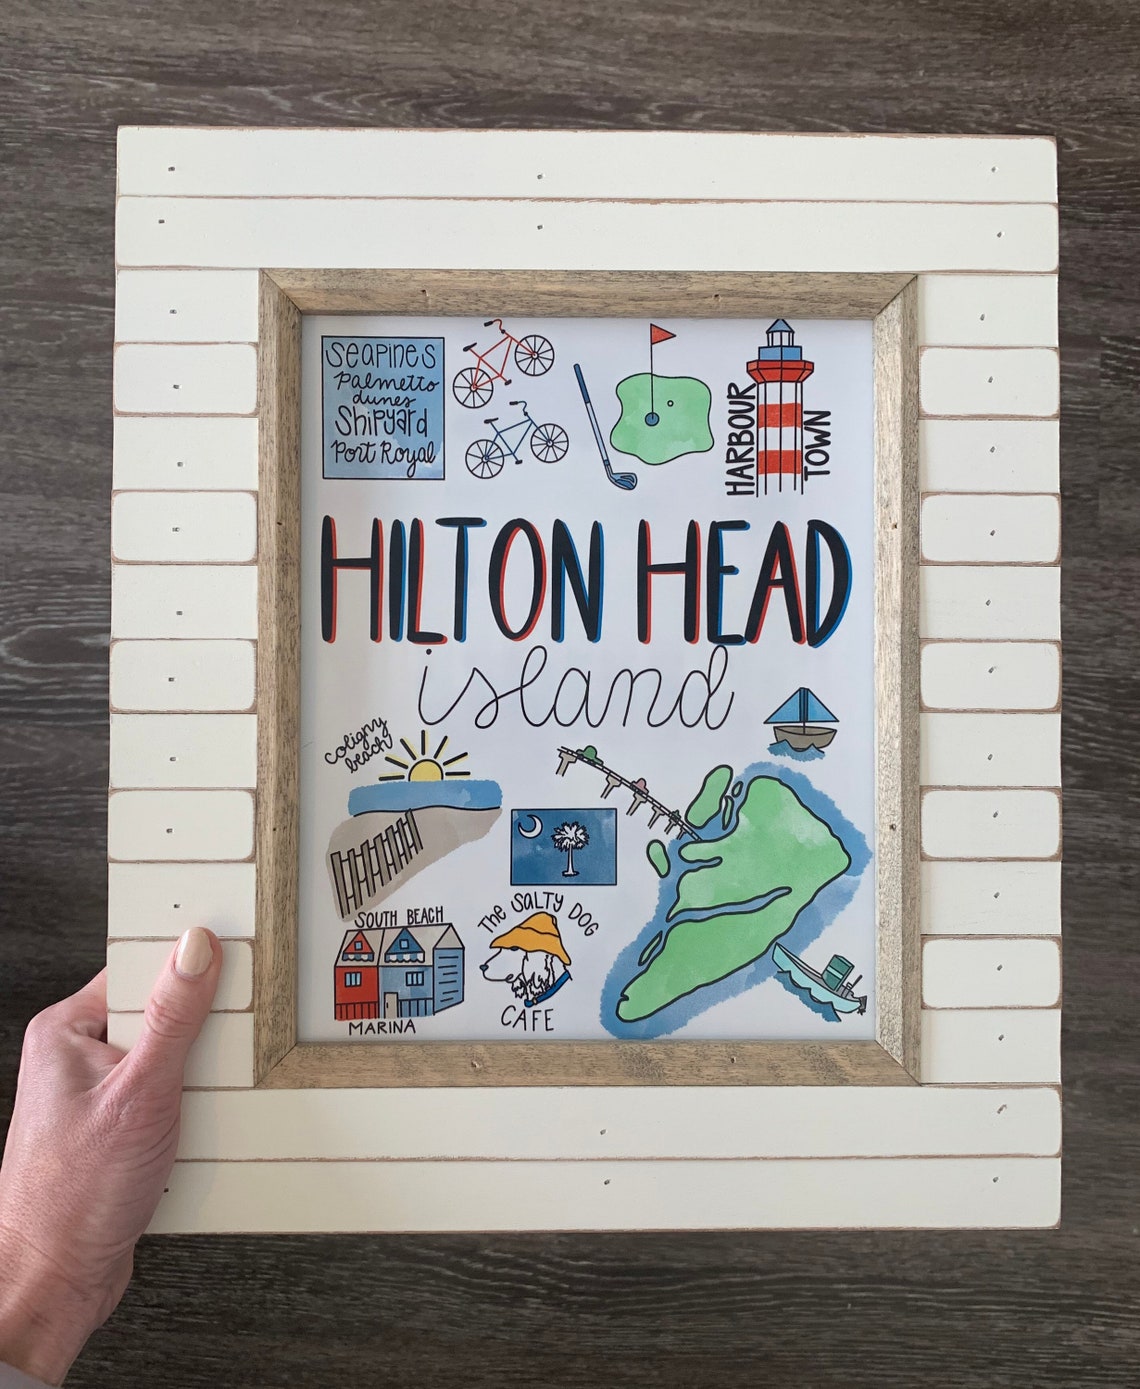 SEAPINES
Palmetto
dunes
Shipyard
Port Royal
HARBOUR
TOWN
HILTON HEAD
island
coligny
beach
SOUTH BEACH
MARINA
The SALTY DOG
CAFE